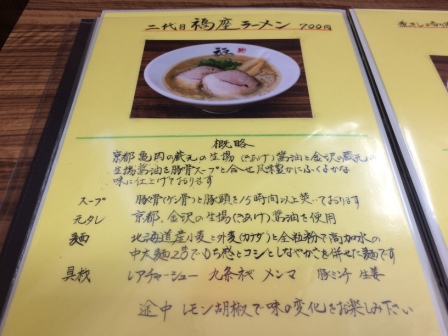 二代目 福座ラーメン 700円
概略
京都 亀岡の蔵元の生揚(きあげ)醤油と金沢の蔵元の
生揚醤油を豚骨スープと合せ尺味豊かにふくよかな
味に仕上げております
スープ 豚骨(ゲン骨)と豚頭を15時間以上炊いております
元タレ 京都、金沢の生揚(きあげ)醤油を使用
麺 北海道産小麦と外麦(カナダ)と全粒粉で高加水の
中太麺22号でもち感とコシとしなやかさを併せた麺です
具材 レアチャーシュー 九条ネギ メンマ 豚ミンチ 生姜
途中 レモン胡椒で味の変化をお楽しみ下さい